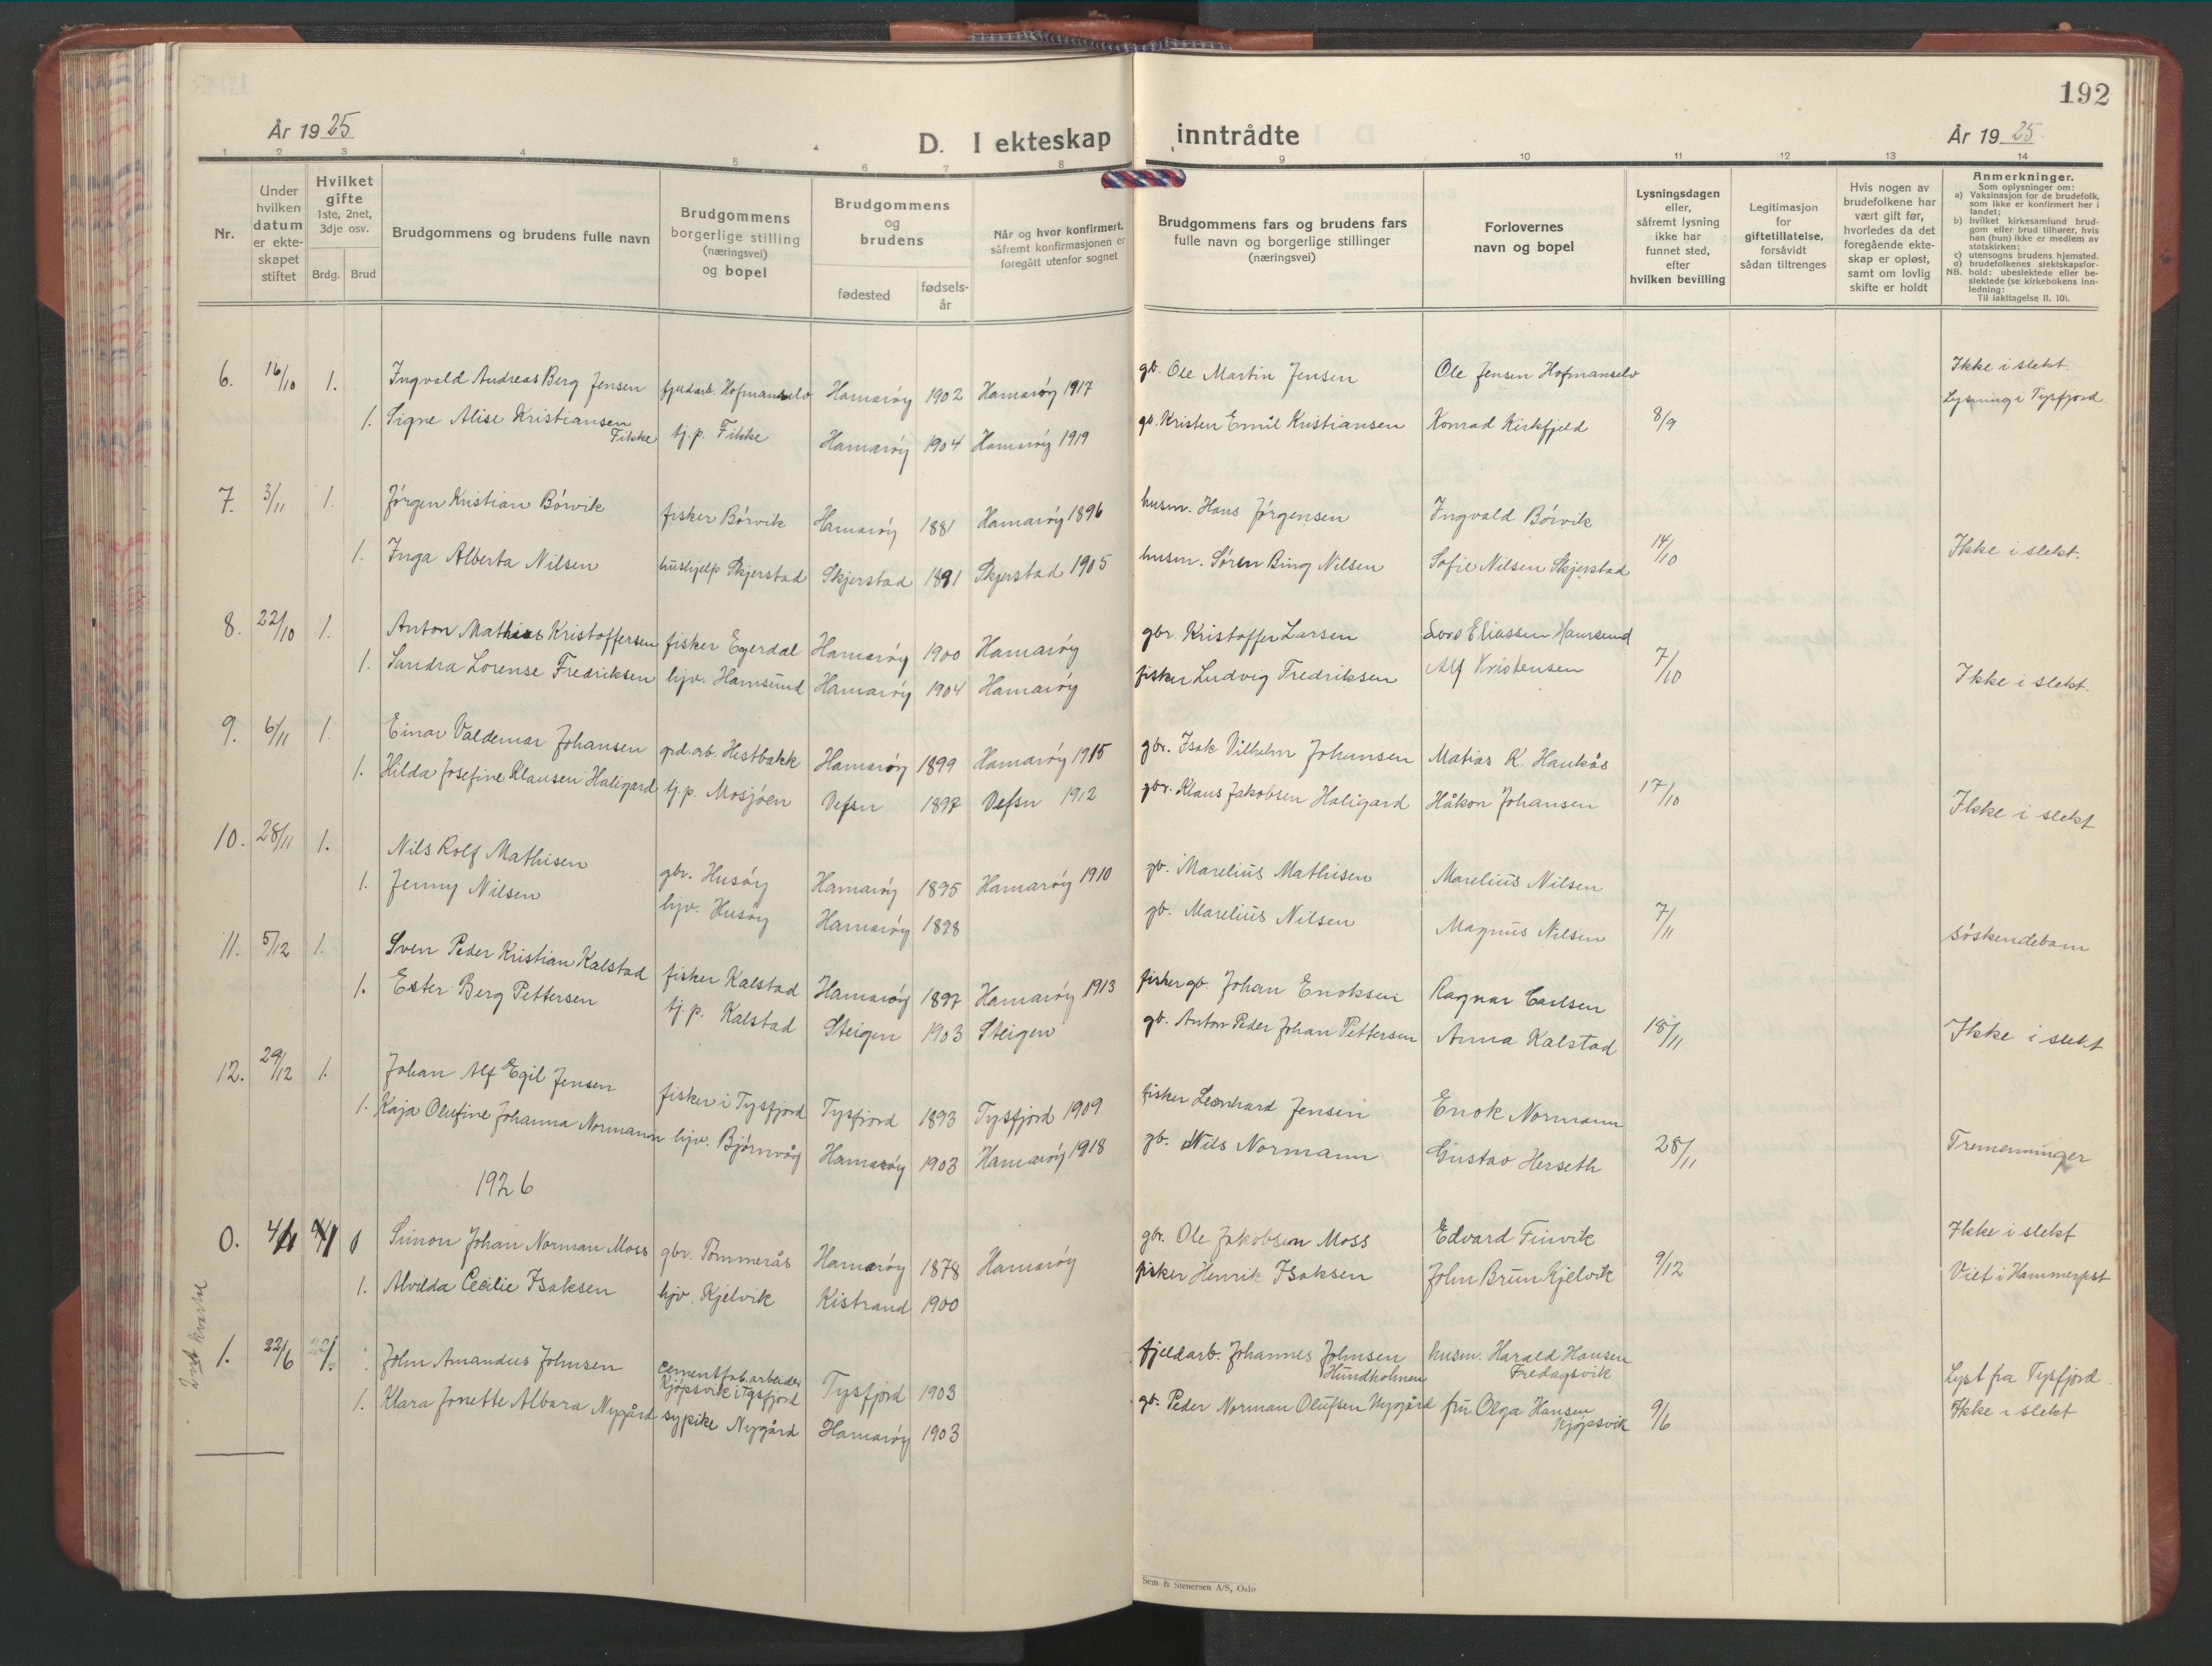 192
År 1925
D. I ekteskap inntrådte
År 1925
1 2 3 4 5 6 7 8 9 10 11 12 13 14
Nr.
Under hvilken datum er ekteskapet stiftet
Hvilket gifte 1ste, 2net, 3dje osv.
Brdg. Brud
Brudgommens og brudens fulle navn
Brudgommens borgerlige stilling (næringsvei) og bopel
Brudgommens og brudens
fødested
fødsels-år
Når og hvor konfirmert, såfremt konfirmasjonen er foregått utenfor sognet
Brudgommens fars og brudens fars fulle navn og borgerlige stillinger (næringsvei)
Forlovernes navn og bopel
Lysningsdagen eller, såfremt lysning ikke har funnet sted, efter hvilken bevilling
Legitimasjon for giftetillatelse, forsåvidt sådan tiltrenges
Hvis nogen av brudefolkene har vært gift før, hvorledes da det foregående ekteskap er opløst, samt om lovlig skifte er holdt
Anmerkninger.
Som oplysninger om:
a) Vaksinasjon for de brudefolk, som ikke er konfirmert her i landet;
b) hvilket kirkesamfund brudgom eller brud tilhører, hvis han (hun) ikke er medlem av statskirken;
c) utensogns brudens hjemsted.
d) brudefolkenes slektskapsforhold: ubeslektede eller beslektede (se kirkebokens innledning:
NB. Til iakttagelse II. 10).
6. 16/10 1. Ingvald Andreas Berg Jensen fjeldarb. Hofmanselv Hamarøy 1902 Hamarøy 1917 gb. Ole Martin Jensen Ole Jensen Hofmanselv Ikke i slekt.
Lysning i Tysfjord.
1. Signe Alise Kristiansen Fikke tj.p. Fikke Hamarøy 1904 Hamarøy 1919 gb. Kristen Emil Kristiansen Konrad Kirkfjeld 8/9
7. 3/11 1. Jørgen Kristian Børvik fisker Børvik Hamarøy 1881 Hamarøy 1896 husm. Hans Jørgensen Ingvald Børvik
1. Inga Alberta Nilsen hushjelp Skjerstad Skjerstad 1891 Skjerstad 1905 husm. Søren Bing Nilsen Sofie Nilsen Skjerstad 14/10 Ikke i slekt.
8. 22/10 1. Anton Mathias Kristoffersen fisker Egerdal Hamarøy 1900 Hamarøy gbr. Kristoffer Larsen Eliassen Hamsund
1. Sandra Lorense Fredriksen hjv. Hamsund Hamarøy 1904 Hamarøy fisker Ludvig Fredriksen Alf Kristensen 7/10 Ikke i slekt.
9. 6/11 1. Einar Valdemar Johansen grd.arb. Hestbakk Hamarøy 1899 Hamarøy 1915 gbr. Isak Vilhelm Johansen Matias K. Haukås
1. Hilda Josefine Klausen Haligard tj.p. Mosjøen Vefsn 1897 Vefsn 1912 gbr. Klaus Jakobsen Haligard Håkon Johansen 17/10 Ikke i slekt
10. 28/11 1. Nils Rolf Mathisen gbr. Husøy Hamarøy 1895 Hamarøy 1910 gb. Marelius Mathisen Marelius Nilsen
1. Jenny Nilsen hjv. Husøy Hamarøy 1898 gb. Marelius Nilsen Magnus Nilsen 7/11 søskendebarn
11. 5/12 1. Sven Peder Kristian Kalstad fisker Kalstad Hamarøy 1897 Hamarøy 1913 fisker gb. Johan Enoksen Ragnar Carlsen
1. Ester Berg Pettersen tj.p. Kalstad Steigen 1903 Steigen gb. Anton Peder Johan Pettersen Anna Kalstad 18/11 Ikke i slekt
12. 29/12 1. Johan Alf Egil Jensen fisker i Tysfjord Tysfjord 1893 Tysfjord 1909 fisker Leonhard Jensen Enok Normann
1. Kaja Olufine Johanna Normann hjv. Bjørnvåg Hamarøy 1903 Hamarøy 1918 gb. Nils Normann Gustav Herseth 28/11 Tremenninger
1926
0. Simon Johan Norman Moss gbr. Tømmerås Hamarøy 1878 Hamarøy gbr. Ole Jakobsen Moss Edvard Finvik Ikke i slekt
1. Alvilda Cecilie Isaksen hjv. Kjelvik Kistrand 1900 fisker Henrik Isaksen John Brun Kjelvik 9/12 Viet i Hammerfest
2net kvartal
1. 22/6 1. John Amandus Johnsen cementfab.arbeider Kjøpsvik i Tysfjord Tysfjord 1903 fjeldarb. Johannes Johnsen Hundholmen husm. Harald Hansen Fredagsvik Lyst fra Tysfjord.
1. Klara Jonette Albara Nygård sypike Nygård Hamarøy 1903 gb. Peder Norman Olufsen Nygård fru Olga Hansen Kjøpsvik 9/6 Ikke i slekt
Sem & Stenersen A/S, Oslo